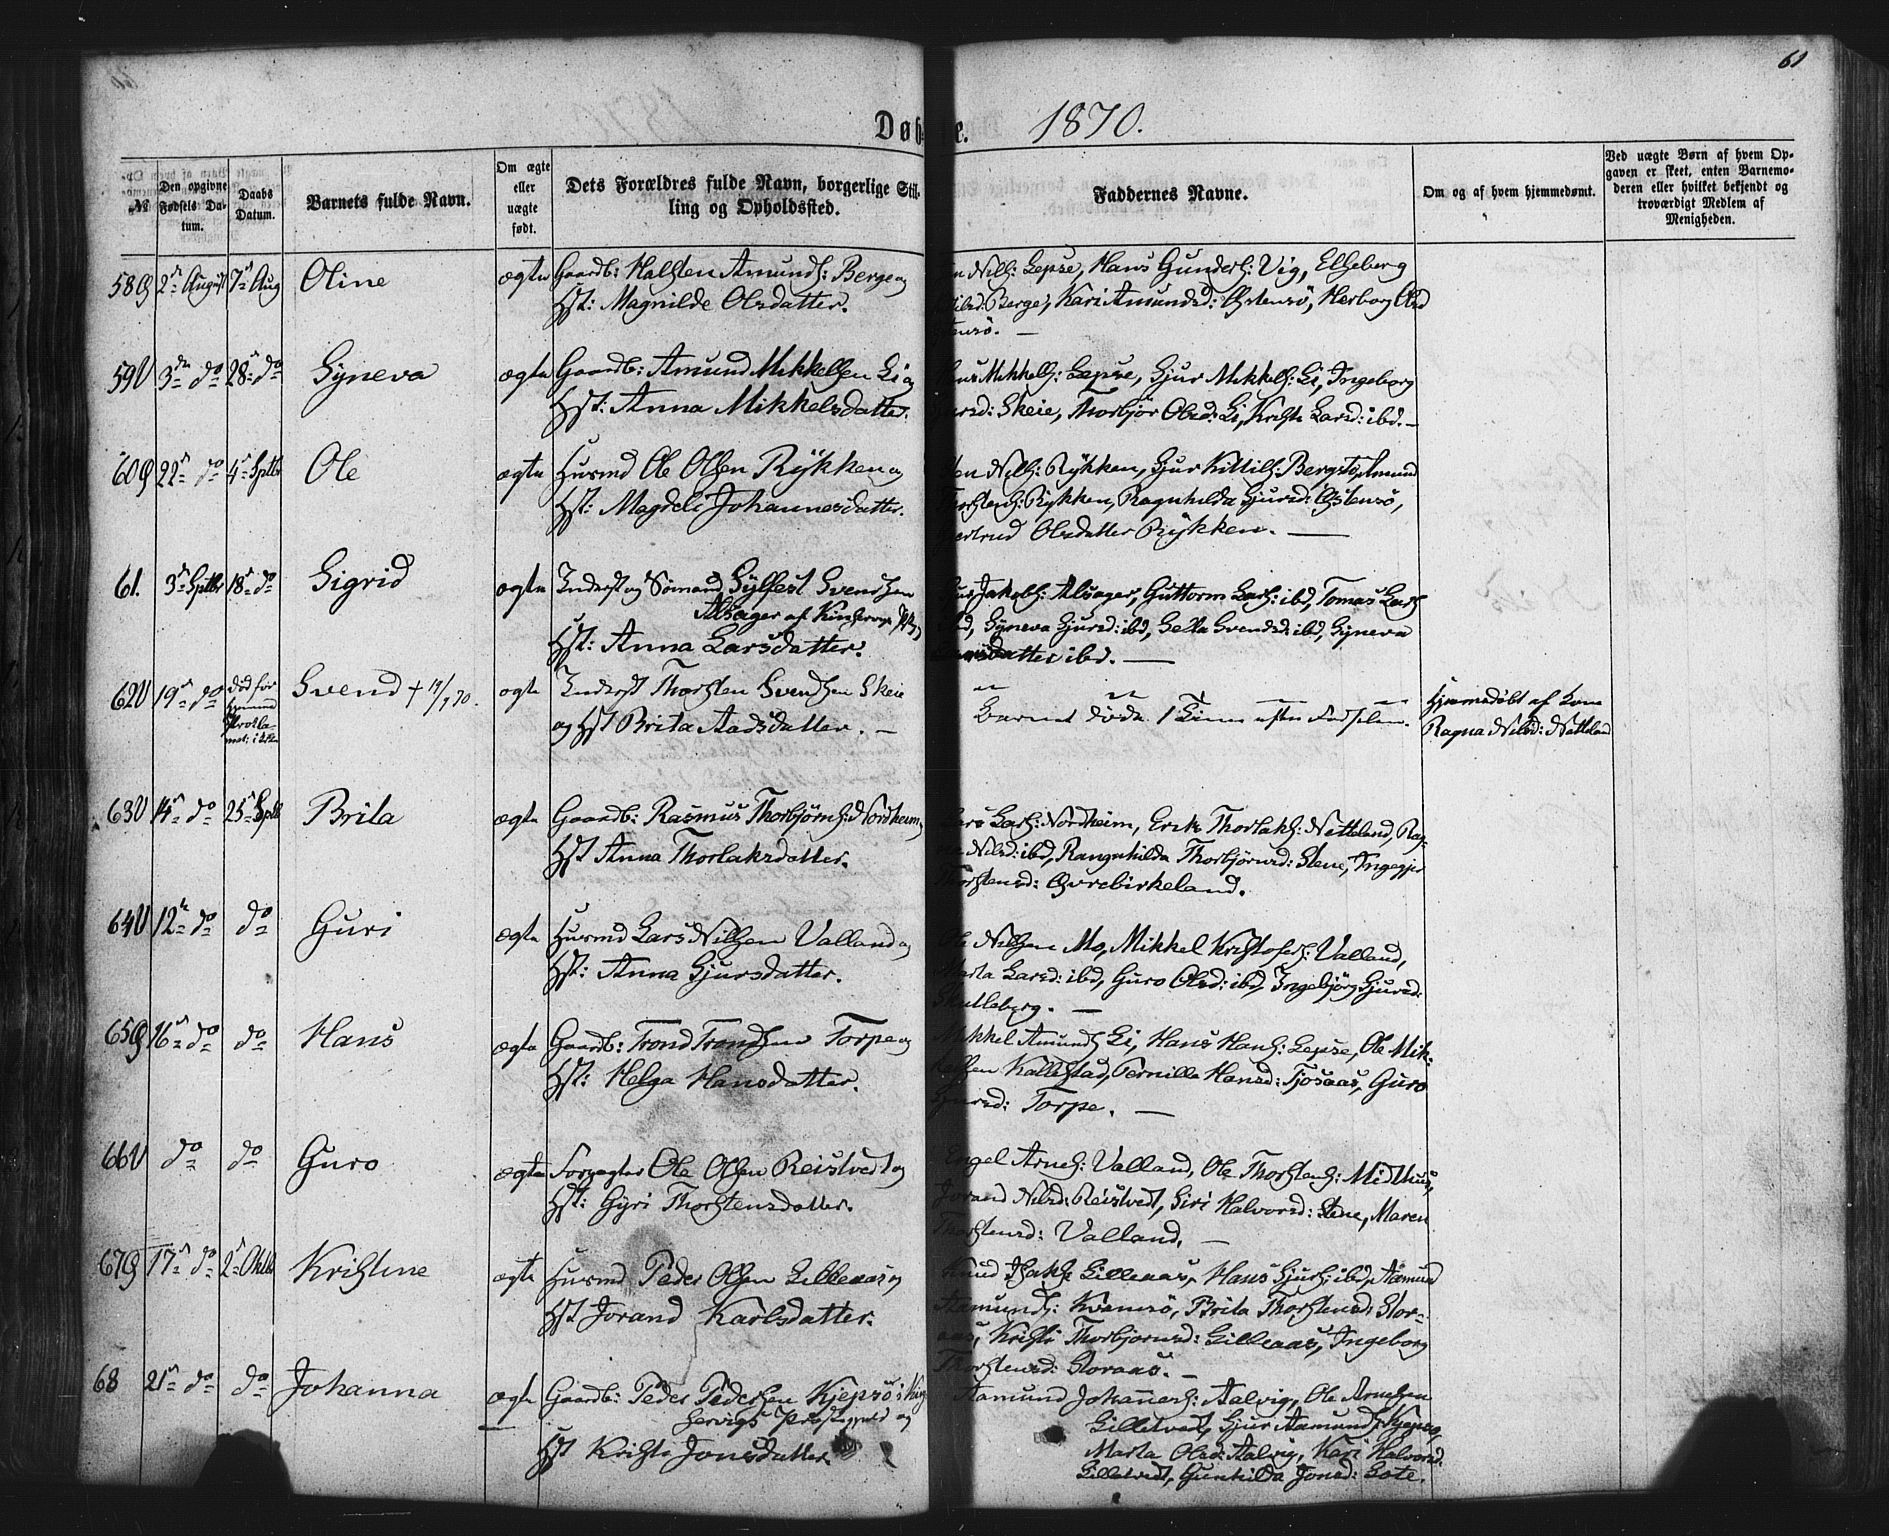 61
Døb e. 1870.
№
Den opgivne Fødsels Datum.
Daabs Datum.
Barnets fulde Navn.
Om ægte eller uægte født.
Dets Forældres fulde Navn, borgerlige Stilling og Opholdssted.
Faddernes Navne.
Om og af hvem hjemmedøbt.
Ved uægte Børn af hvem Opgaven er skeet, enten Barnemoderen eller hvilket bekjendt og troværdigt Medlem af Menigheden.
58 2n August 7n Aug Oline ægte Gaardb: Halsten Amunds: Berge og
Hst: Magnilde Olsdatter.
Nils: Lepsø, Hans Gunders: Vig, Elseberg
Nilsd: Berge, Kari Amundsd: Østensö, Herborg Olsd
59 3die do 28n do Syneva ægte Gaardb: Amund Mikkelsen Li og
Hst: Anna Mikkelsdatter.
Mikkels: Lepsø, Sjur Mikkels: Li, Ingeborg
Skeie, Thorbjör Olsd: Li, Kristi Larsd: ibd. —
60 22n do 4n Sptbr Ole ægte Husmd Ole Olsen Rykken og
Hst: Magdeli Johannesdatter.
Nils: Rykken, Sjur Kittils: Bergstø, Amund
Thorstens: Rykken, Ragnhilda Sjursd: Østensö,
Olsdatter Rykken. —
61. 3n Sptbr 18n do Sigrid ægte Inderst og Sömand Sylfest Svendsen
Alsager af Kinservigs
Hst: Anna Larsdatter.
Jakobs: Alsager, Guttorm Lars: ibd, Tomas Lars
Syneva Sjursd: ibd, Sella Svendsd: ibd, Syneva
ibd. —
62 19n do Død før Svend † 19/9 70. ægte Inderst Thorsten Svendsen Skeie
og Hst Brita Aadsdatter. —
Barnet døde 1 Time efter Fødselen.
Hjemmedøbt af Kone
Ragna Nilsd: Netteland
63 14n do 25n Sptb Brita ægte Gaardb: Rasmus Thorbjörns: Nordheim
Hst Anna Thorlaksdatter.
Lars: Nordheim, Erik Thorlaks: Netteland, Rag-
Nilsd: ibd, Rangnhilda Thorbjörnsd: Stene, Ingegjer
Thorstensd: Øvrebirkeland.
64 12te do do Guri ægte Husmd Lars Nilsen Valland og
Hst: Anna Sjursdatter.
Ole Nilsen Mo, Mikkel Kristofers: Valland,
Marta Larsd: ibd, Guro Olsd: ibd, Ingebjörg Sjursd:
Skutleberg. —
65 16n do do Hans ægte Gaardb: Trond Trondsen Torpe og
Hst: Helga Hansdatter.
Mikkel Amunds Li, Hans Hans: Lepsø, Ole Mik-
kelsen Kallestad, Pernille Hansd: Tjosaas, Guro
Sjursd: Torpe. —
66 do do Guro ægte Forpagter Ole Olsen Reistvedt og
Hst: Gyri Thorstensdatter.
Engel Arnes: Valland, Ole Thorstens: Midthus,
Jorand Nilsd: Reistvedt, Siri Halvorsd: Stene, Maren
Thorstensd: Valland. —
67 17n do 2n Oktb Kristine ægte Husmd Peder Olsen Lilleaas og
Hst Jorand Karlsdatter.
Knud Lilleaas, Hans Sjurs: ibd, Aamund
Aamunds: Kvamsö, Brita Thorstensd: Stor-
aas, Kristi Thorbjörnsd: Lilleaas, Ingeborg
Thorstensd: Storaas. —
68 21n do do Johanna ægte Gaardb: Peder Pedersen Kjepsö i Kin-
servigs Præstegjeld og
Hst Kristi Jonsdatter.
Aamund Johannes: Aalvig, Ole Arnesen
Lilletvedt, Sjur Aamunds: Kjepsö,
Marta Olsd: Aalvig, Kari Halvorsd:
Lilletvedt, Gunhilda Jonsd: Bote.